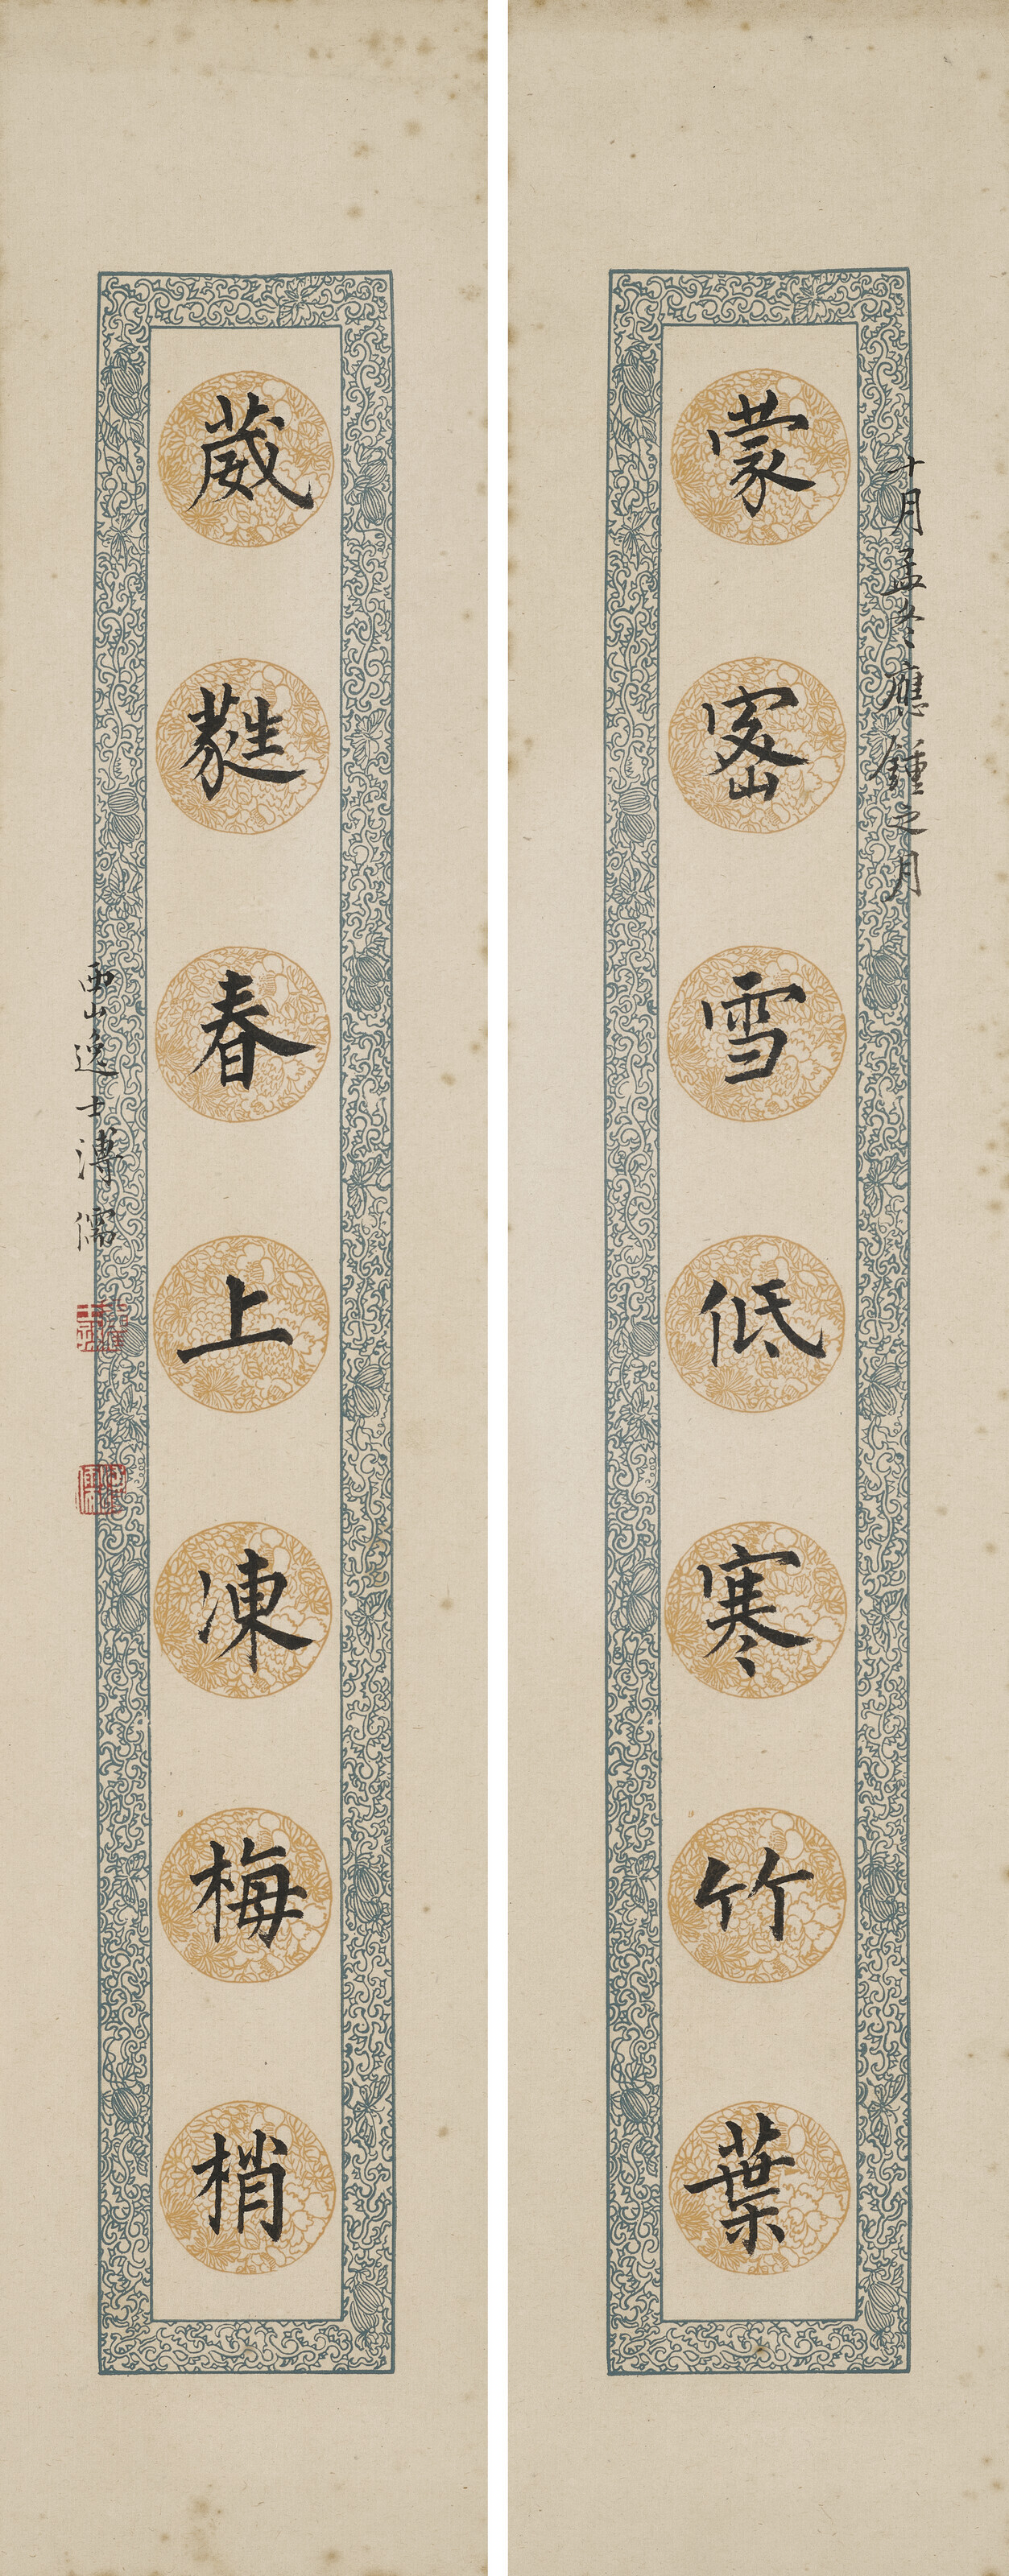 十月孟冬應鍾之月
蒙密雪低寒竹葉
葳蕤春上凍梅梢
西山逸士溥儒